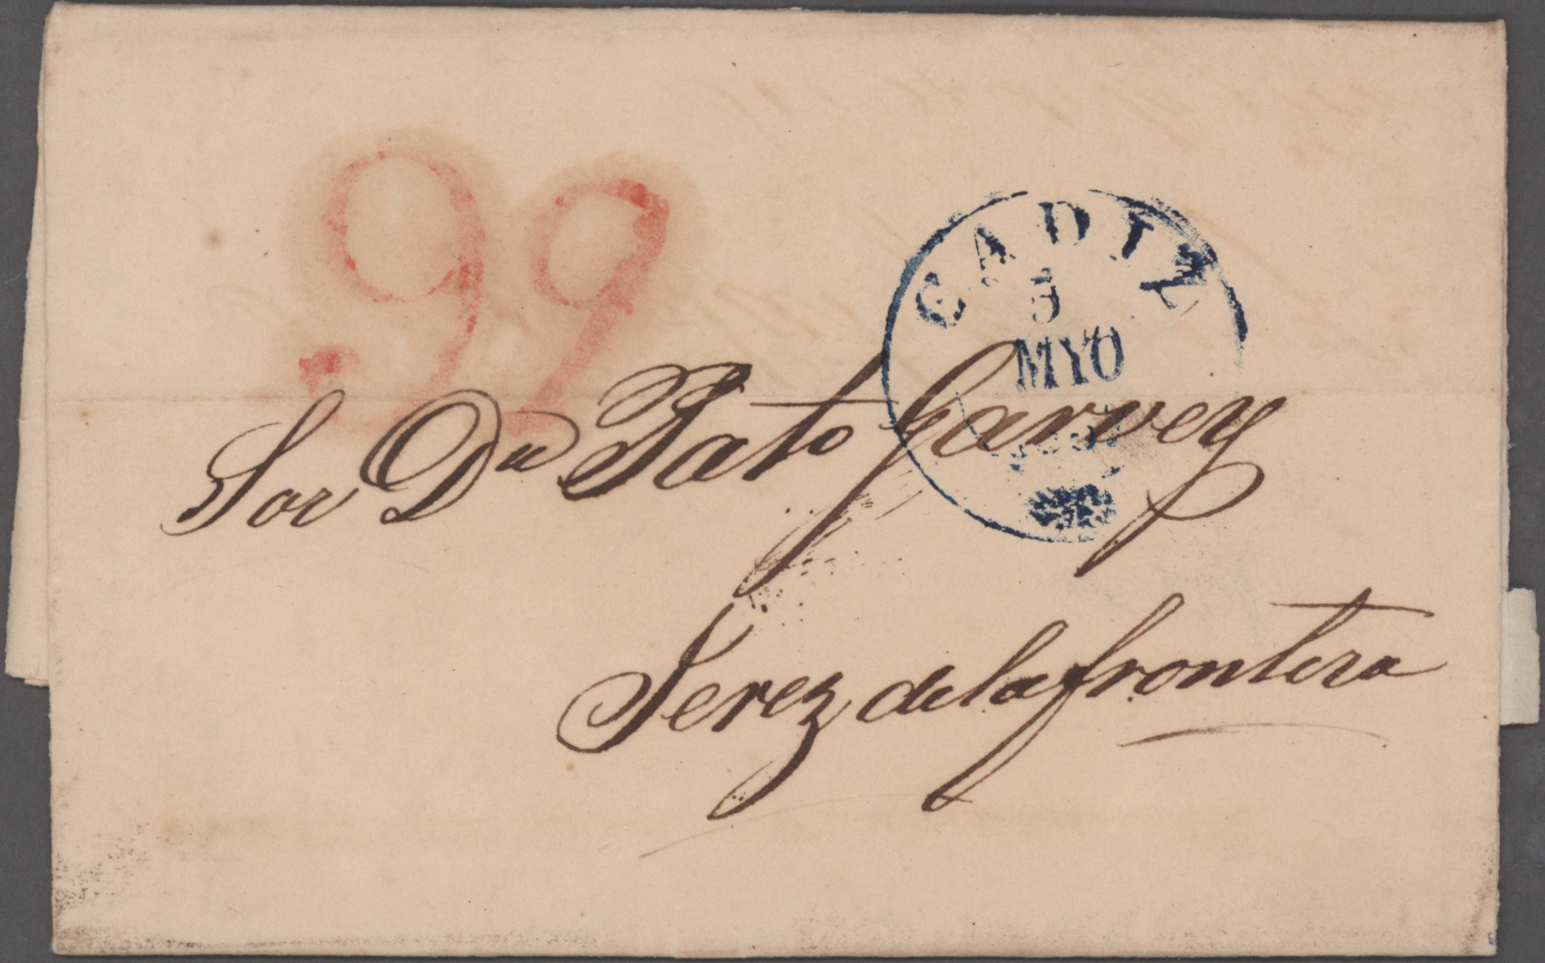 99
CADIZ
5
MYO
Sor Dn Pato Garvey
Jerez de la frontera